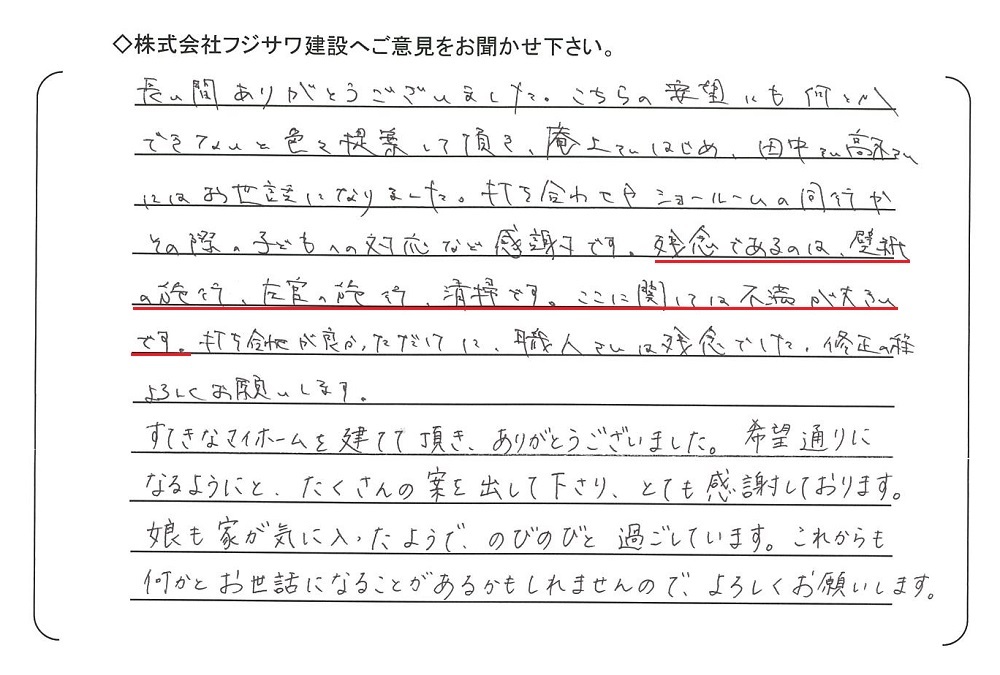 ◇株式会社フジサワ建設へご意見をお聞かせ下さい。
長い間ありがとうございました。こちらの要望にも何とか
できないと色々提案して頂き、庵上さんはじめ、田中さん高木さん
にはお世話になりました。打ち合わせやショールームの同行や
その際の子どもへの対応など感謝です。残念であるのは、壁紙
の施行、左官の施行、清掃です。ここに関しては不満が大きい
です。打ち合わせが良かっただけに、職人さんは残念でした。修正の程
よろしくお願いします。
すてきなマイホームを建てて頂き、ありがとうございました。希望通りに
なるようにと、たくさんの案を出して下さり、とても感謝しております。
娘も家が気に入ったようで、のびのびと過ごしています。これからも
何かとお世話になることがあるかもしれませんので、よろしくお願いします。